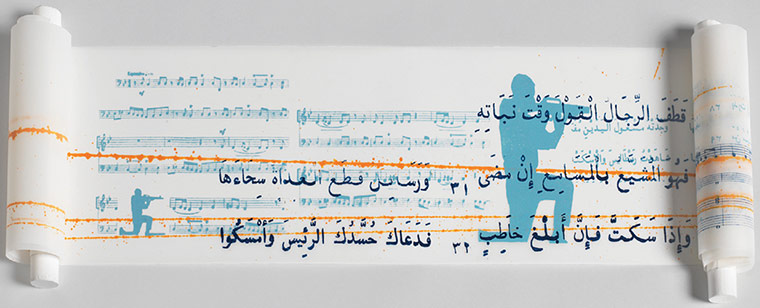 قَطَفَ الرِّجَالُ الْقَوْلَ وَقْتَ نَبَاتِهِ
وجدته مشغول اليدين
فهو المشيع بالمسامع إِنْ مَضَى ٣١ وَرَسَائِلٍ قَطَعَ العُدَاةُ سِحَاءَهَا
وَإِذَا سَكَتَّ فَإِنَّ أَبْلَغَ خَاطِبٍ ٣٢ فَدَعَاكَ حُسَّدُكَ الرَّئِيسَ وَأَمْسَكُوا